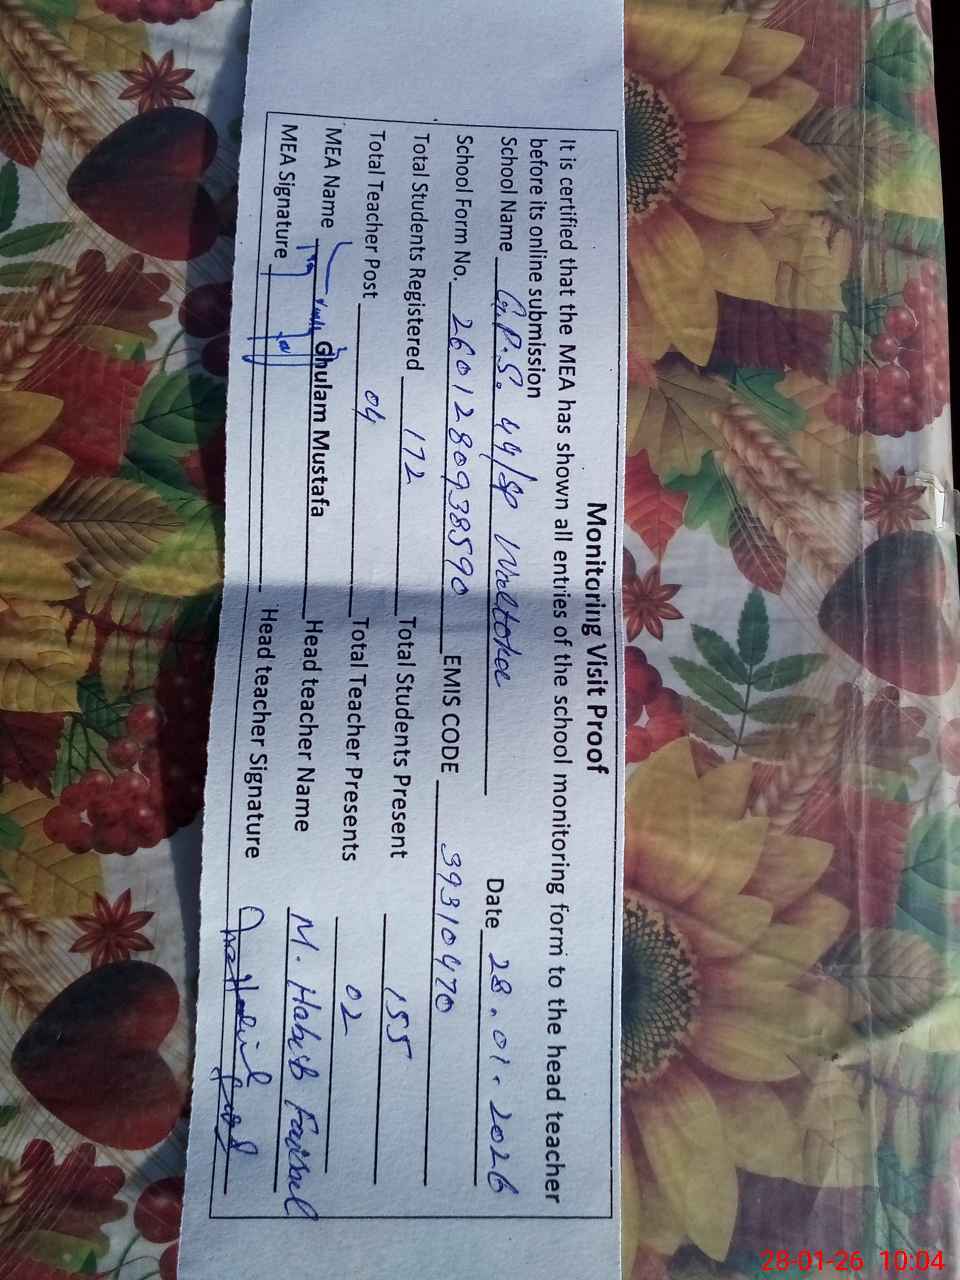 Monitoring Visit Proof
It is certified that the MEA has shown all entries of the school monitoring form to the head teacher
before its online submission
School Name G.P.S. 44/SP Date 28.01.2026
School Form No. 2601280938590 EMIS CODE 39310470
Total Students Registered 172 Total Students Present 155
Total Teacher Post 04 Total Teacher Presents 02
MEA Name Ghulam Mustafa Head teacher Name M. Habib Faisal
MEA Signature Head teacher Signature
28-01-26 10:04